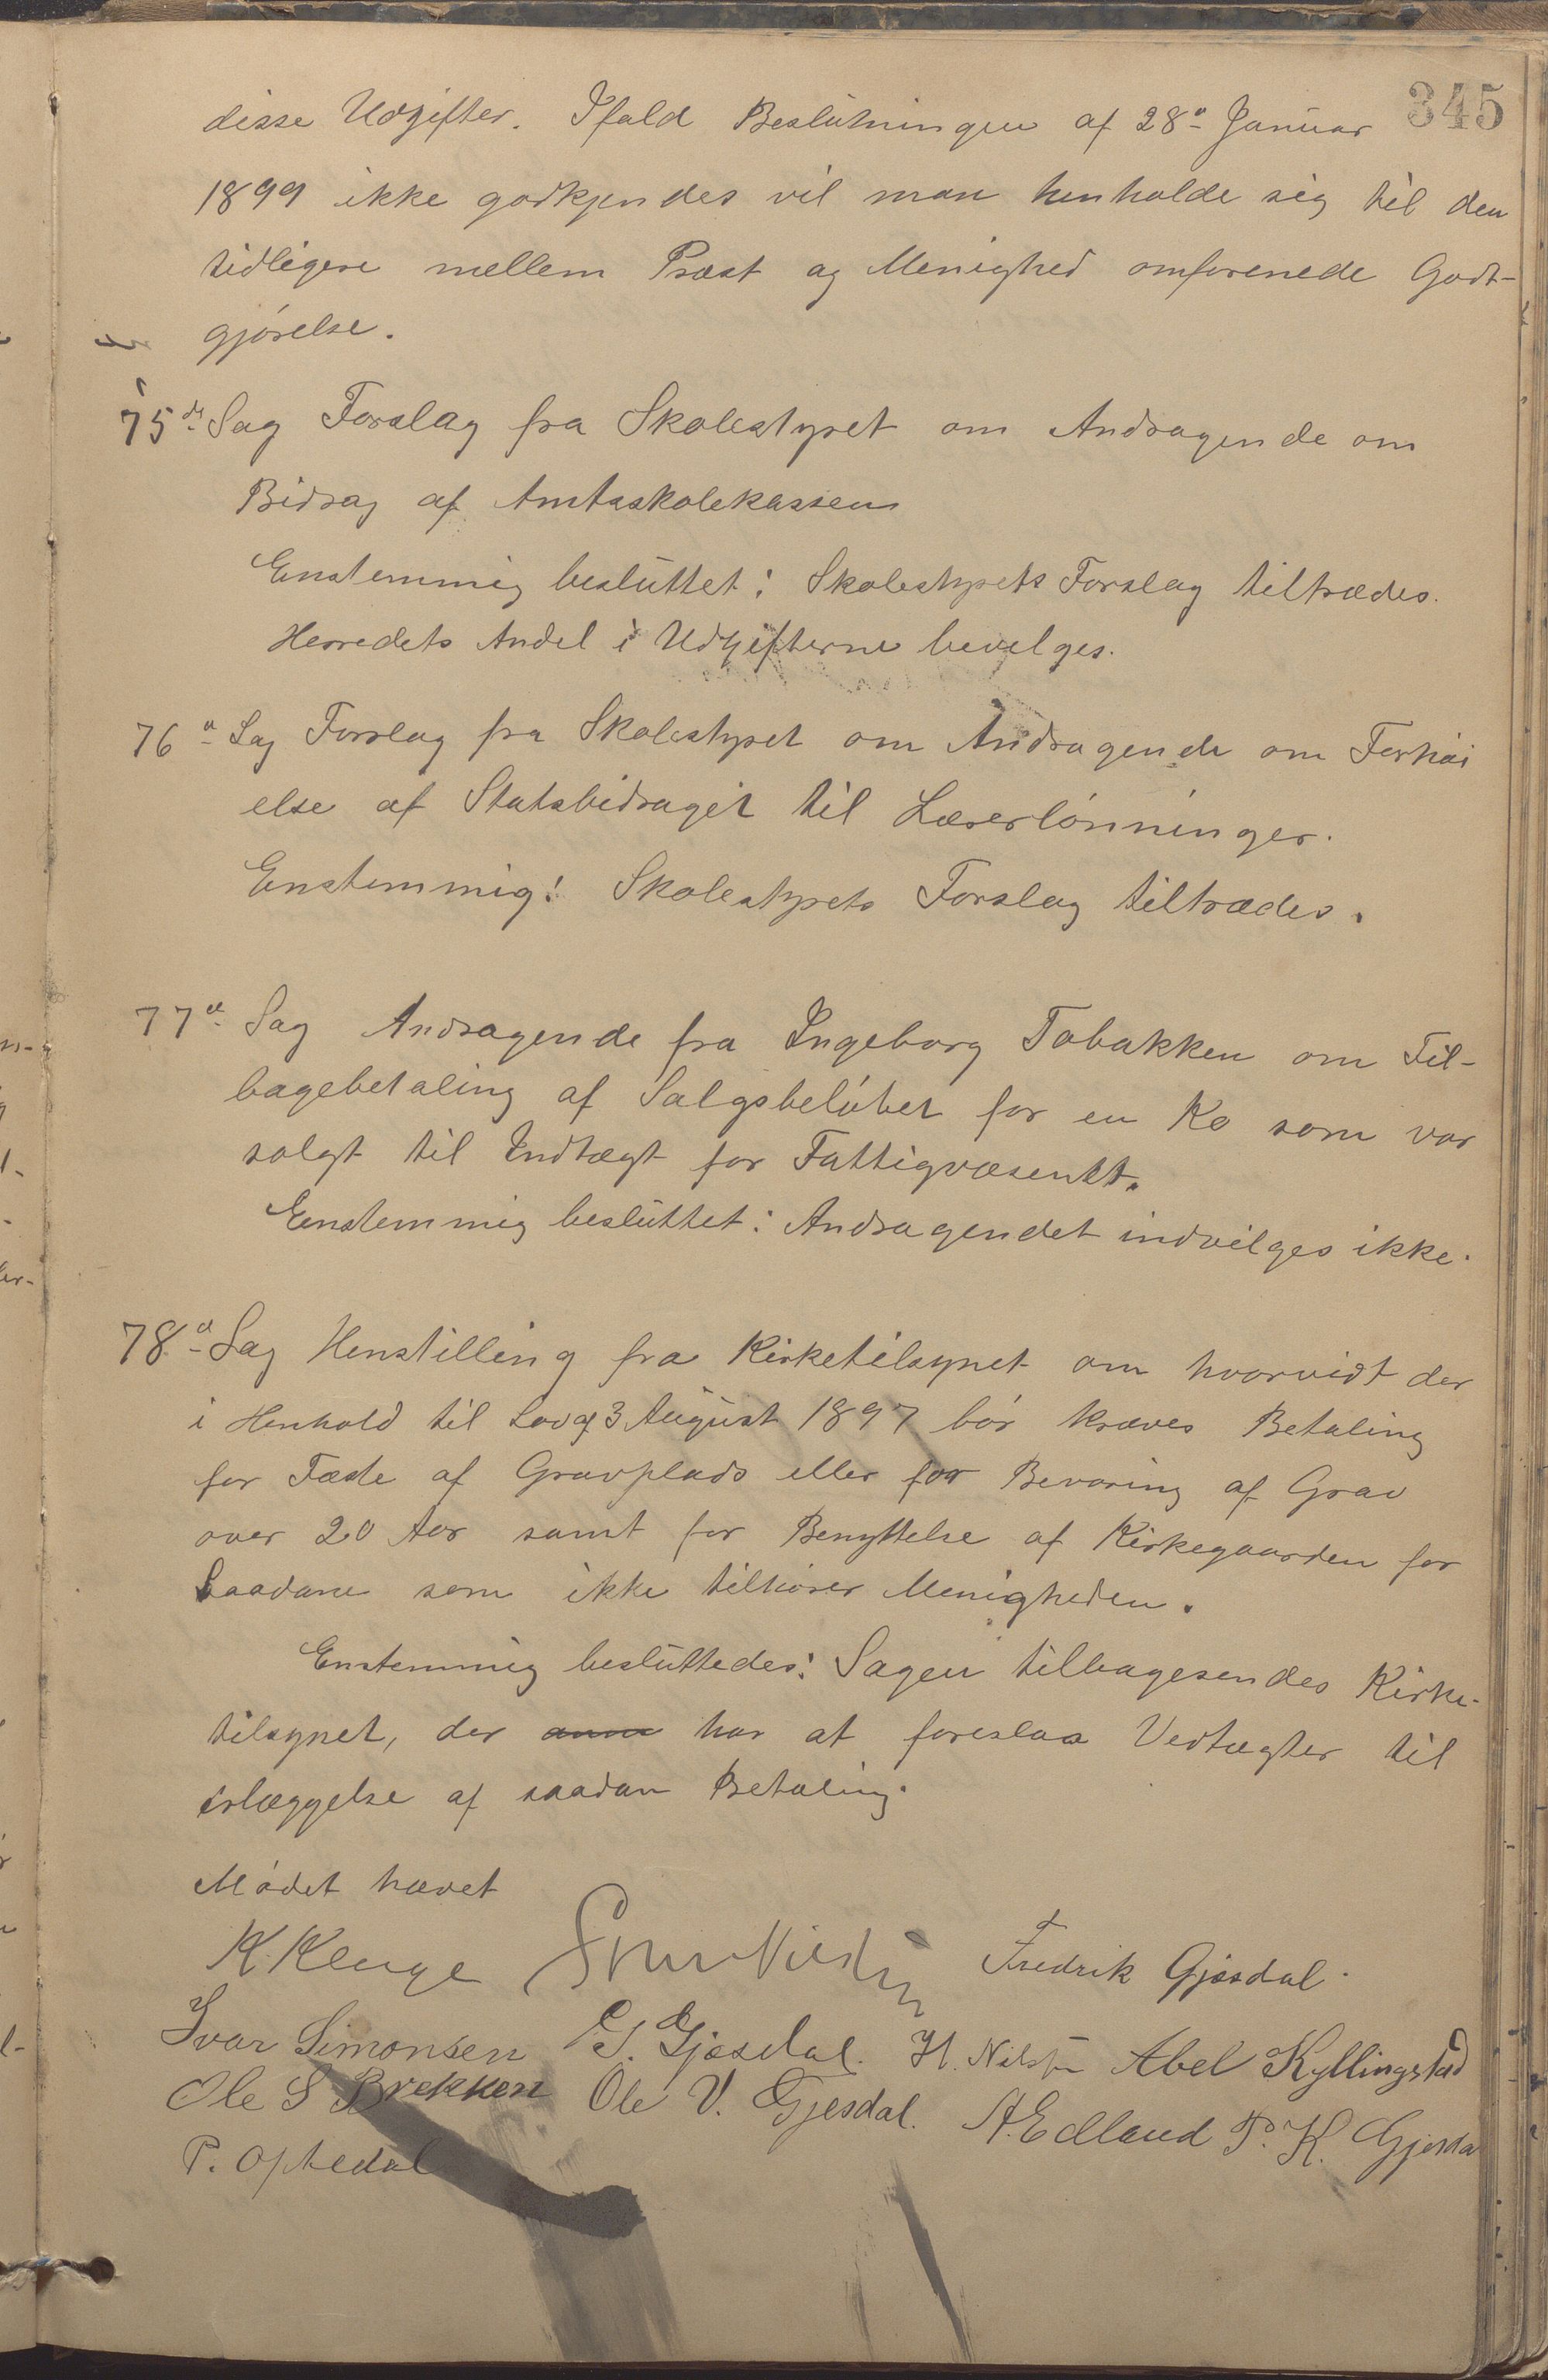 345
disse Udgifter. Ifald Beslutningen af 28de Januar
1899 ikke godkjendes vil man henholde sig til den
tidligere mellem Præst og Menighed omforenede Godt-
gjørelse.
75de Sag Forslag fra Skolestyret om Andragende om
Bidrag af Amtsskolekassen
Enstemmig besluttet: Skolestyrets Forslag tiltrædes.
Herredets Andel i Udgifterne bevilges.
76de Sag Forslag fra Skolestyret om Andragende om Forhøi
else af Statsbidraget til Lærerlønninger.
Enstemmig: Skolestyrets Forslag tiltrædes.
77de Sag Andragende fra Ingeborg Tobakken om Til-
bagebetaling af Salgsbeløbet for en Ko som var
solgt til Indtægt for Fattigvæsentt.
Enstemmig besluttet: Andragendet indvilges ikke.
78de Sag Henstilling fra Kirketilsynet om hvorvidt der
i Henhold til Lov af 3 August 1897 bør kræves Betaling
for Fæste af Gravplads eller for Bevaring af Grav
over 20 Aar samt for Benyttelse af Kirkegaarden for
Saadane som ikke tilhører Menigheden.
Enstemmig besluttedes: Sagen tilbagesendes Kirke-
tilsynet, der har at foreslaa Vedtægter til
erlæggelse af saadan Betaling.
Mødet hævet
K. Kluge Fredrik Gjesdal.
Ivar Simonsen G. Gjesdal. H. Abel Kyllingstad
Ole S Brekken Ole V. Gjesdal. A. Edland P. K. Gjesda
P. Oftedal